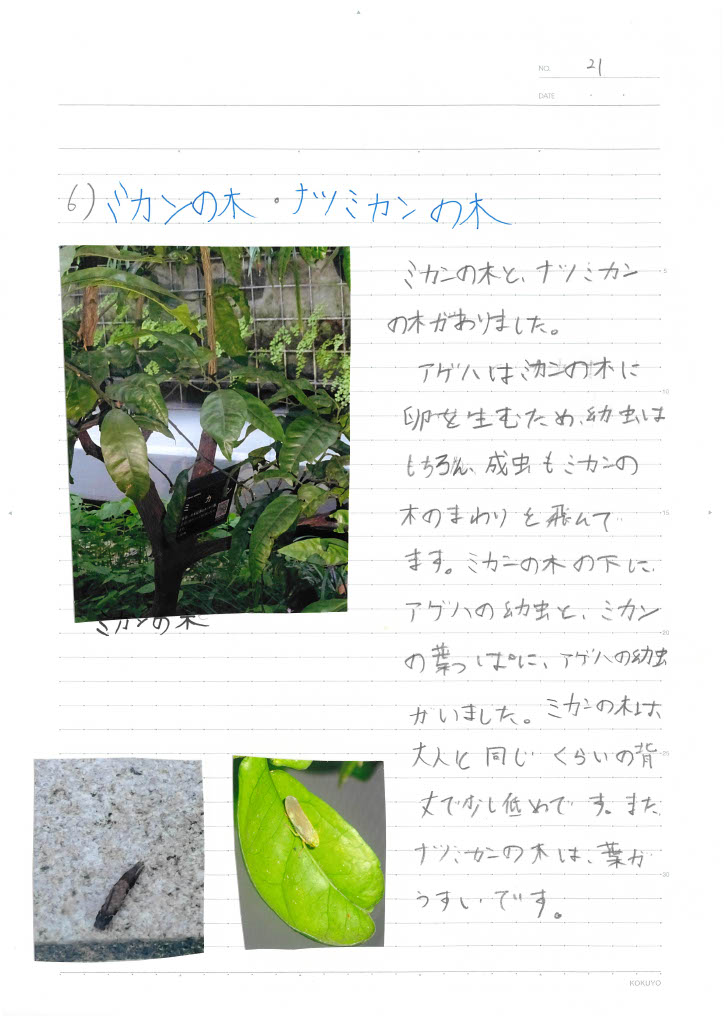 NO. 21
DATE ・ ・
6)ミカンの木・ナツミカンの木
ミカンの木と、ナツミカン
の木がありました。
アゲハはミカンの木に
卵を生むため、幼虫は
もちろん、成虫もミカンの
木のまわりを飛んで
ます。ミカンの木の下に、
アゲハの幼虫と、ミカン
の葉っぱに、アゲハの幼虫
がいました。ミカンの木は、
大人と同じくらいの背
丈で少し低めです。また、
ナツミカンの木は、葉が
うすいです。
ミカ
ミカンの木
5
10
15
20
25
30
KOKUYO